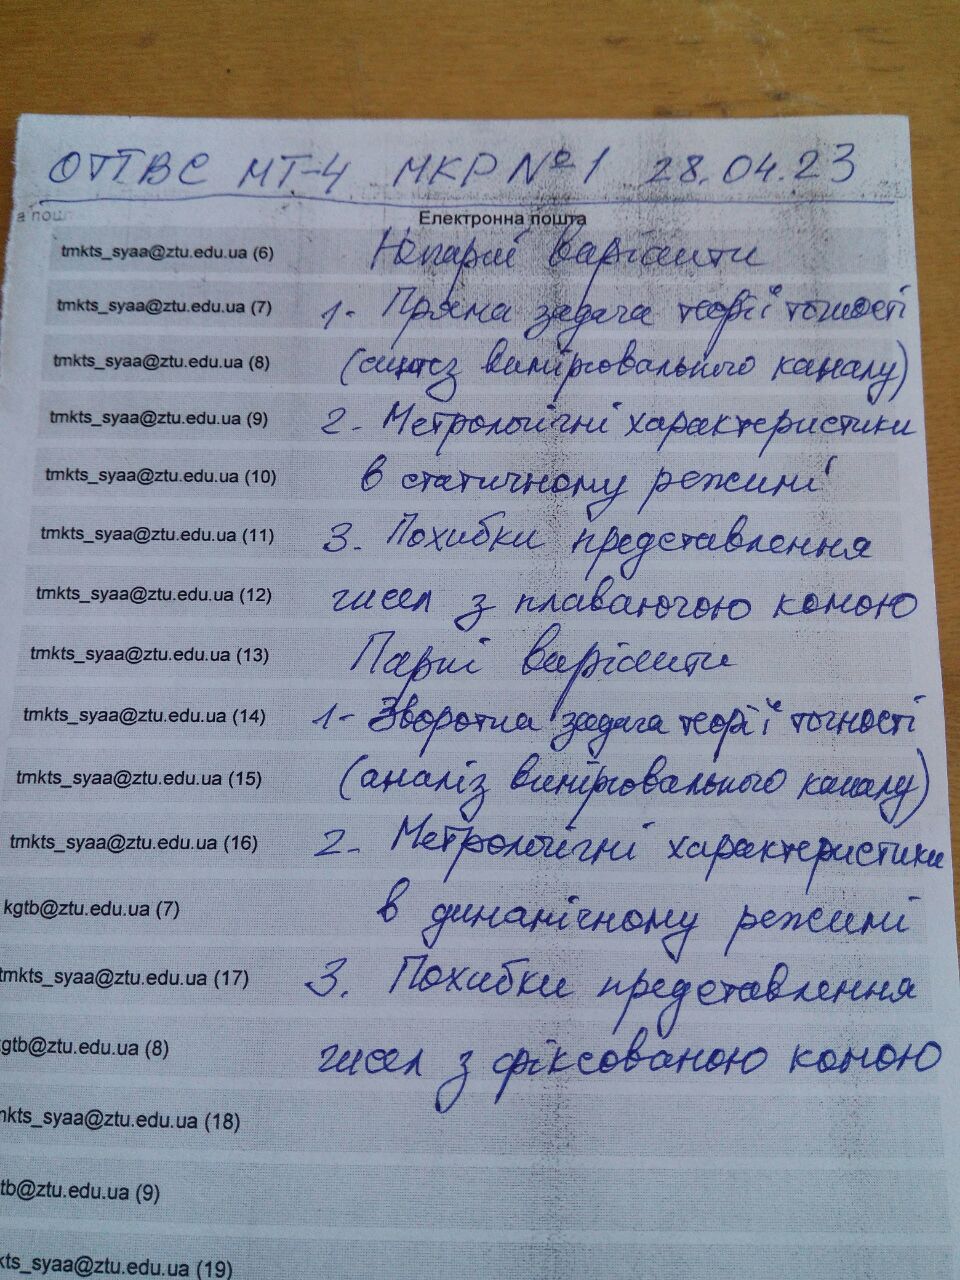 ОТТВС МТ-4 МКР №1 28.04.23
а пош
Електронна пошта
tmkts_syaa@ztu.edu.ua (6) Непарні варіанти
tmkts_syaa@ztu.edu.ua (7) 1. Пряма задача теорії точності
tmkts_syaa@ztu.edu.ua (8) (синтез вимірювального каналу)
tmkts_syaa@ztu.edu.ua (9) 2. Метрологічні характеристики
tmkts_syaa@ztu.edu.ua (10) в статичному режимі
tmkts_syaa@ztu.edu.ua (11) 3. Похибки представлення
tmkts_syaa@ztu.edu.ua (12) чисел з плаваючою комою
tmkts_syaa@ztu.edu.ua (13) Парні варіанти
tmkts_syaa@ztu.edu.ua (14) 1- Зворотна задача теорії точності
tmkts_syaa@ztu.edu.ua (15) (аналіз вимірювального каналу)
tmkts_syaa@ztu.edu.ua (16) 2. Метрологічні характеристики
kgtb@ztu.edu.ua (7) в динамічному режимі
tmkts_syaa@ztu.edu.ua (17) 3. Похибки представлення
kgtb@ztu.edu.ua (8) чисел з фіксованою комою
mkts_syaa@ztu.edu.ua (18)
tb@ztu.edu.ua (9)
kts_syaa@ztu.edu.ua (19)